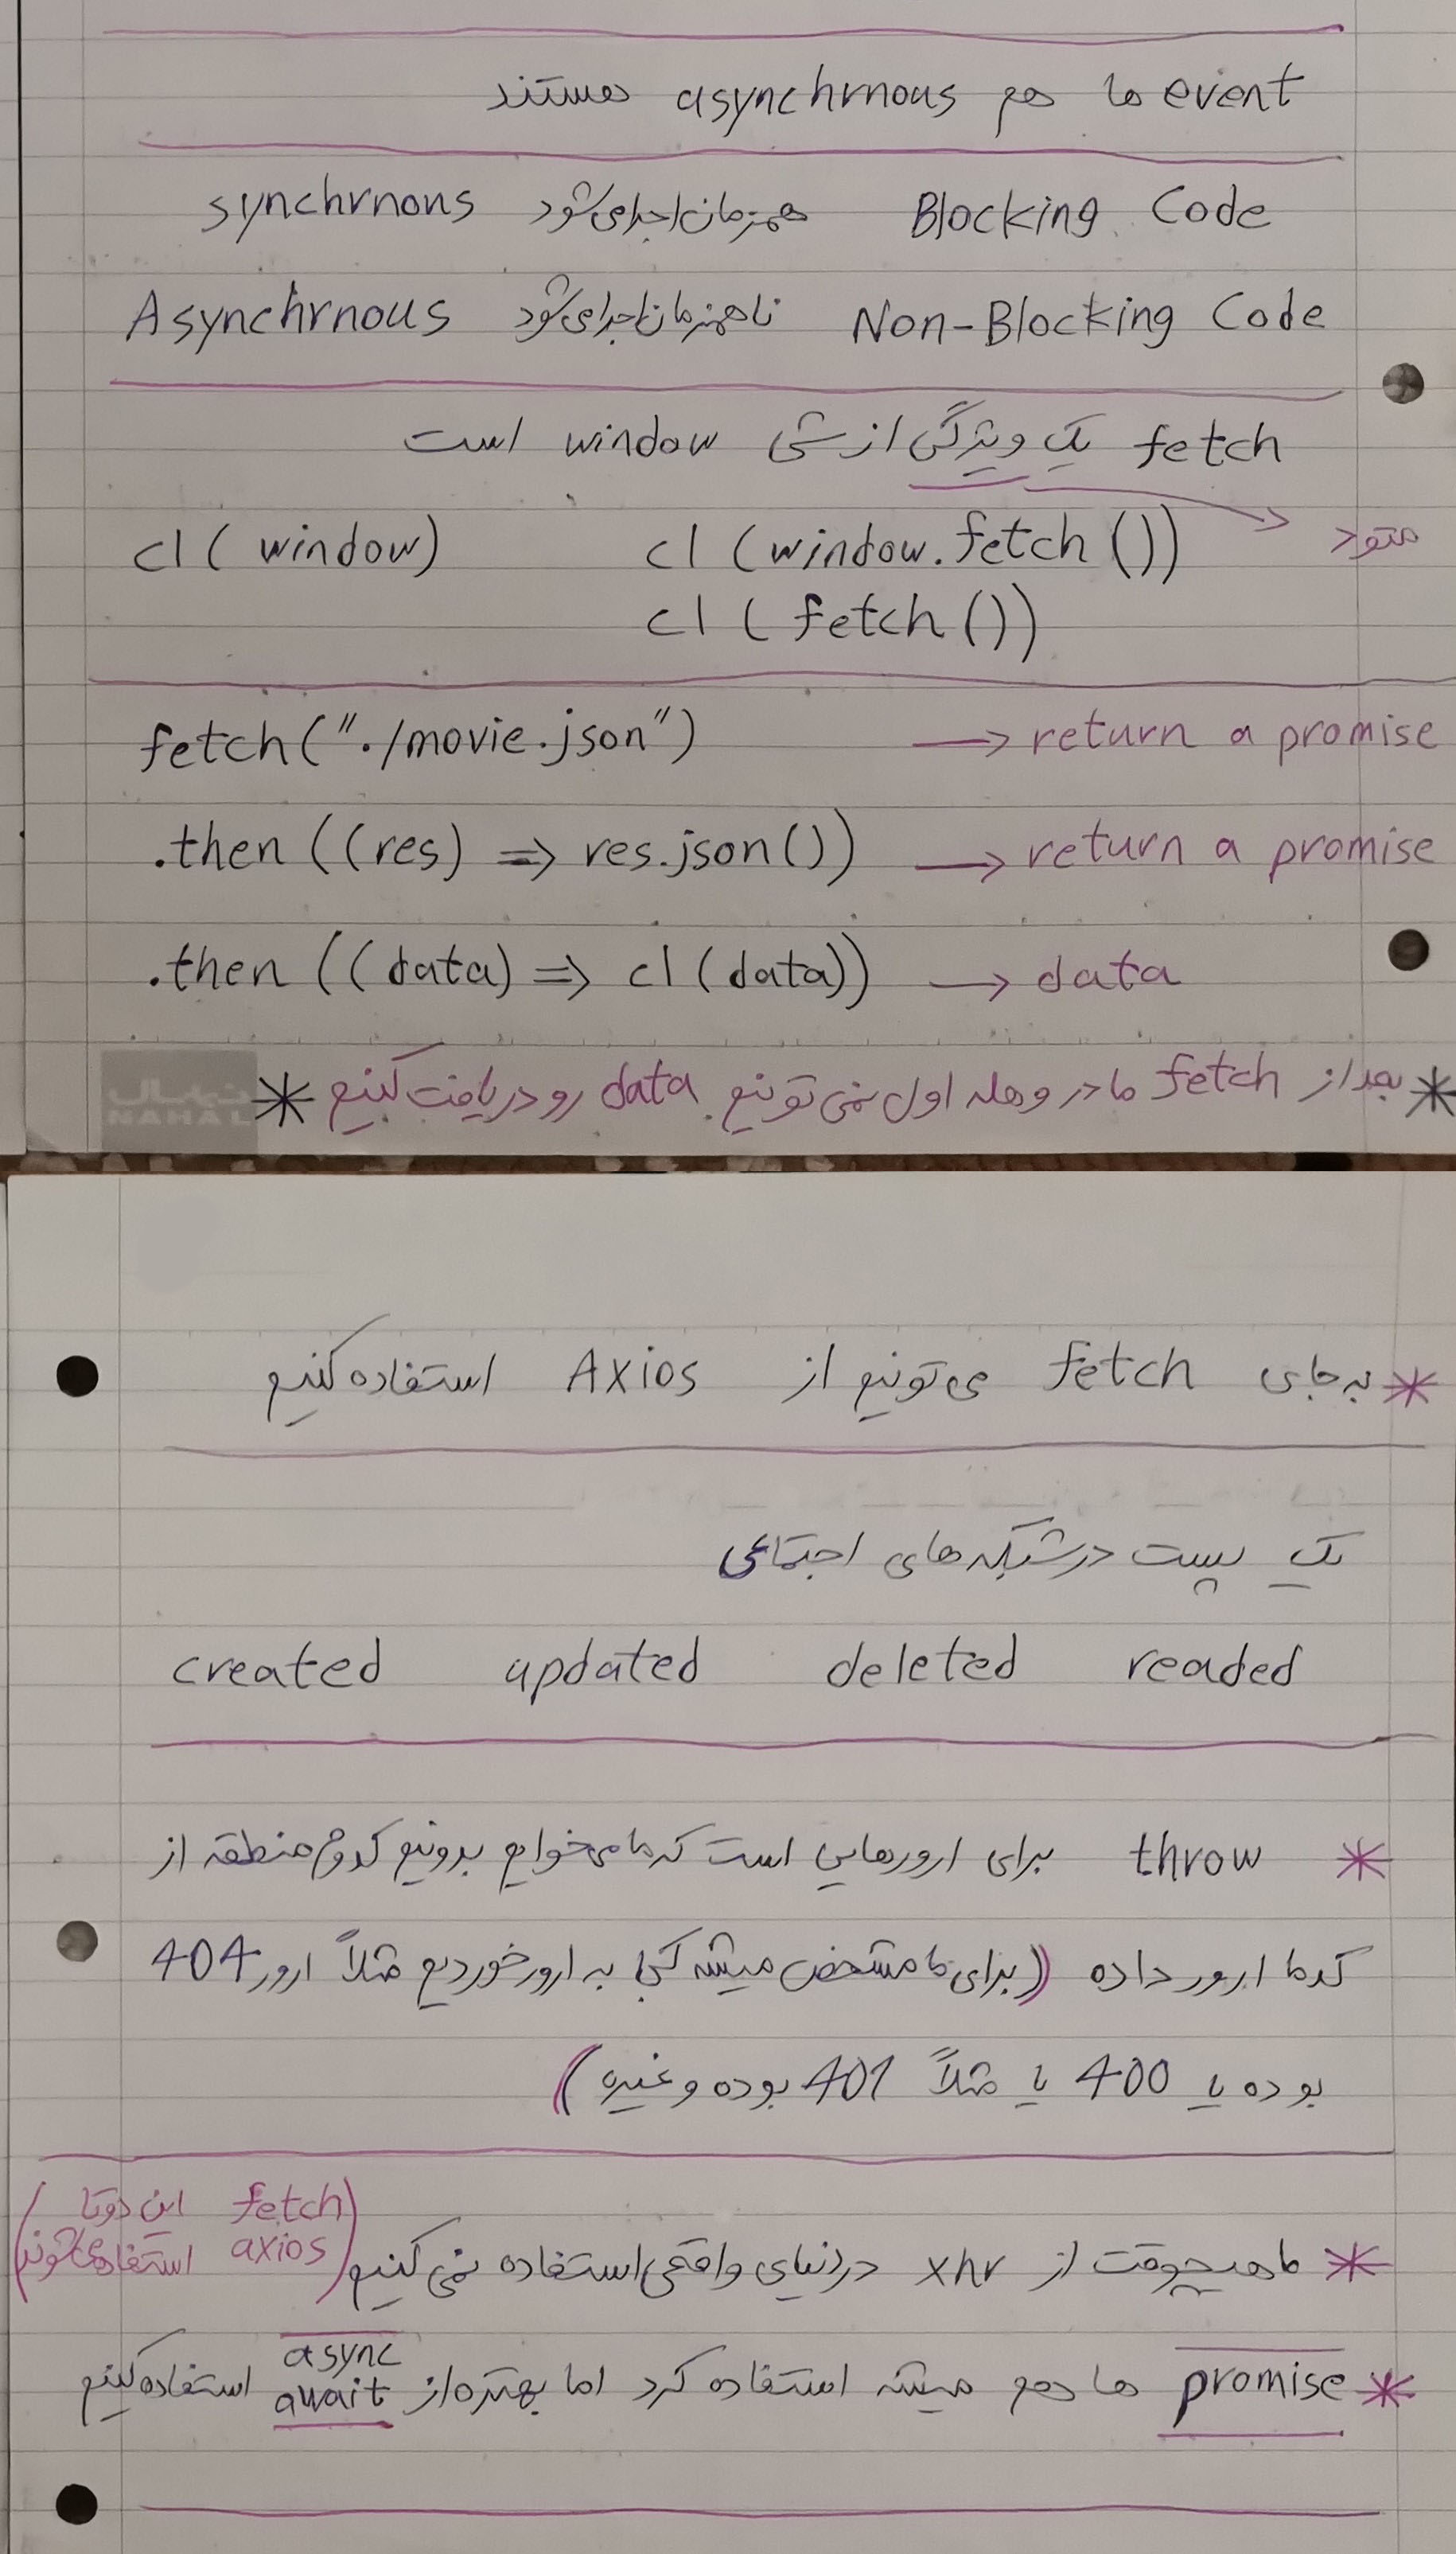 event ها هم asynchrnous هستند
synchrnons همزمان اجرا می‌شود Blocking Code
Asynchrnous ناهمزمان اجرا می‌شود Non-Blocking Code
fetch یک ویژگی از شی window است
cl ( window) cl (window.fetch ()) متود
cl ( fetch ())
fetch ("./movie.json") → return a promise
.then ((res) => res.json()) → return a promise
.then ((data) => cl (data)) → data
* بعد از fetch ما در وهله اول نمی تونیم data رو دریافت کنیم *
نهال
NAHAL
* به جای fetch می تونیم از Axios استفاده کنیم
یک پست در شبکه های اجتماعی
created updated deleted readed
* throw برای ارورهایی است که ما می خوایم بدونیم کدوم منطقه از
کدما ارور داده (برای ما مشخص میشه کجا به ارور خوردیم مثلاً ارور 404
بوده یا 400 یا مثلاً 401 بوده و غیره)
* ما هیچوقت از xhr در دنیای واقعی استفاده نمی کنیم (fetch axios این دوتا استفاده میشوند)
* promise ها هم میشه استفاده کرد اما بهتره از async await استفاده کنیم